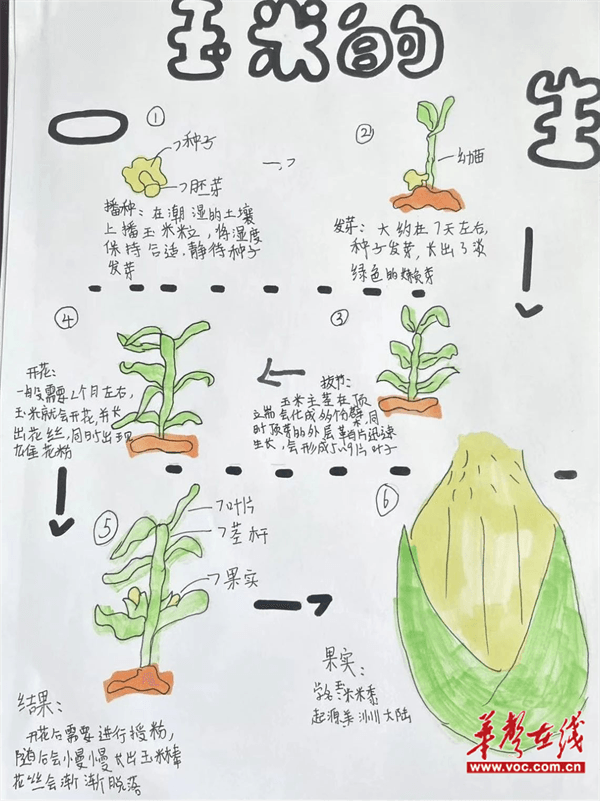 玉米的
生
①
种子
胚芽
播种：在潮湿的土壤
上播玉米粒，将湿度
保持合适，静待种子
发芽
②
幼苗
发芽：大约在7天左右，
种子发芽，长出了淡
绿色的嫩芽
③
拔节：
玉米主茎在顶
生长，会形成5、9片叶子
④
开花：
一般需要2个月左右，
玉米就会开花，并长
出花丝，同时出现
花粉
⑤
叶片
茎杆
果实
结果：
开花后需要进行授粉，
随后会慢慢长出玉米棒
花丝会渐渐脱落
⑥
果实：
起源美洲大陆
华声在线
www.voc.com.cn